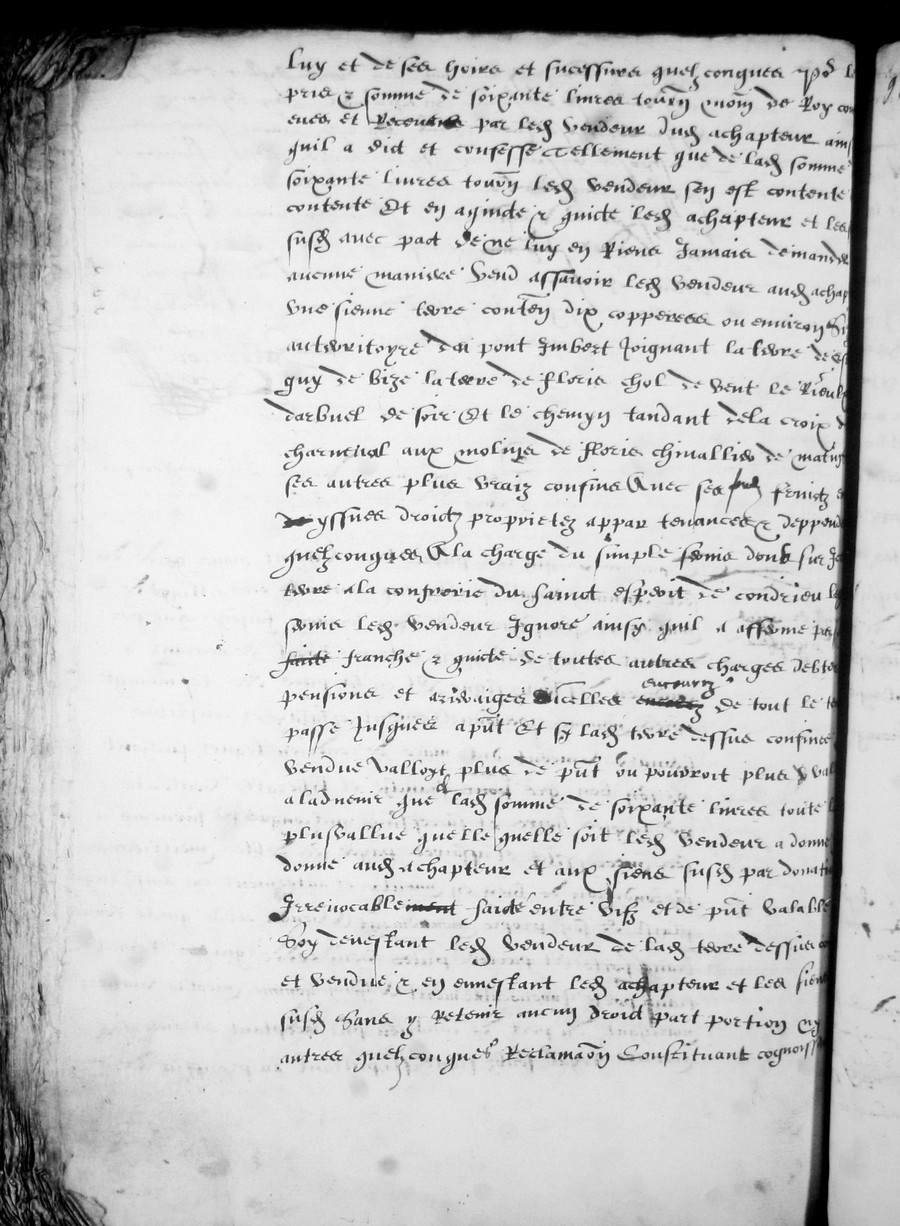 luy et de ses hoirs et sucesseurs quelzconques po^r le
pris & somme de soixante livres tourn monn de Roy
eues et Receues par led vendeur dud achapteur ain
quil a dict et confesse Tellement que de lad somme
soixante livres tourn led vendeur sen est contente
contente Et en a quicte & quicte led achapteur et les
susd avec pact de ne luy en Riens Jamais demander
aucune maniere Vend assavoir led vendeur aud achap
une sienne terre conten dix copperees ou environ
au territoyre du pont Imbert Joignant la terre de
guy de bize la terre de floris chol de vent le Rieulx
darbuel de soir Et le chemyn tandant de la croix d
charneval aux molins de floris chivallier de matin
ses autres plus vraiz confins Avec ses fruictz
yssues droictz proprietez appartenances & deppend
quelzconques A la charge du simple servis deub sur
terre a la confrerie du sainct esperit de condrieu
servis led vendeur Ignore ainsy quil a afferme
faicte franche & quicte de toutes autres charges debtes
pensions et arreraiges dicelles encouruz de tout le te
passe Jusques a pnt Et sy lad terre dessus confinee
vendue valloyt plus de pnt ou pouvoit plus val
a ladvenir que lad somme de soixante livres toute
plusvallue quelle quelle soit led vendeur a donne
donne aud achapteur et aux siens susd par donati
Irrevocablement faicte entre vifz et de pnt valable
Soy devestant led vendeur de lad terre dessus
et vendue & en envestant led achapteur et les siens
susd Sans y Retenir aucun droict part portion
autres quelzconques Reclamaon Constituant cognoiss